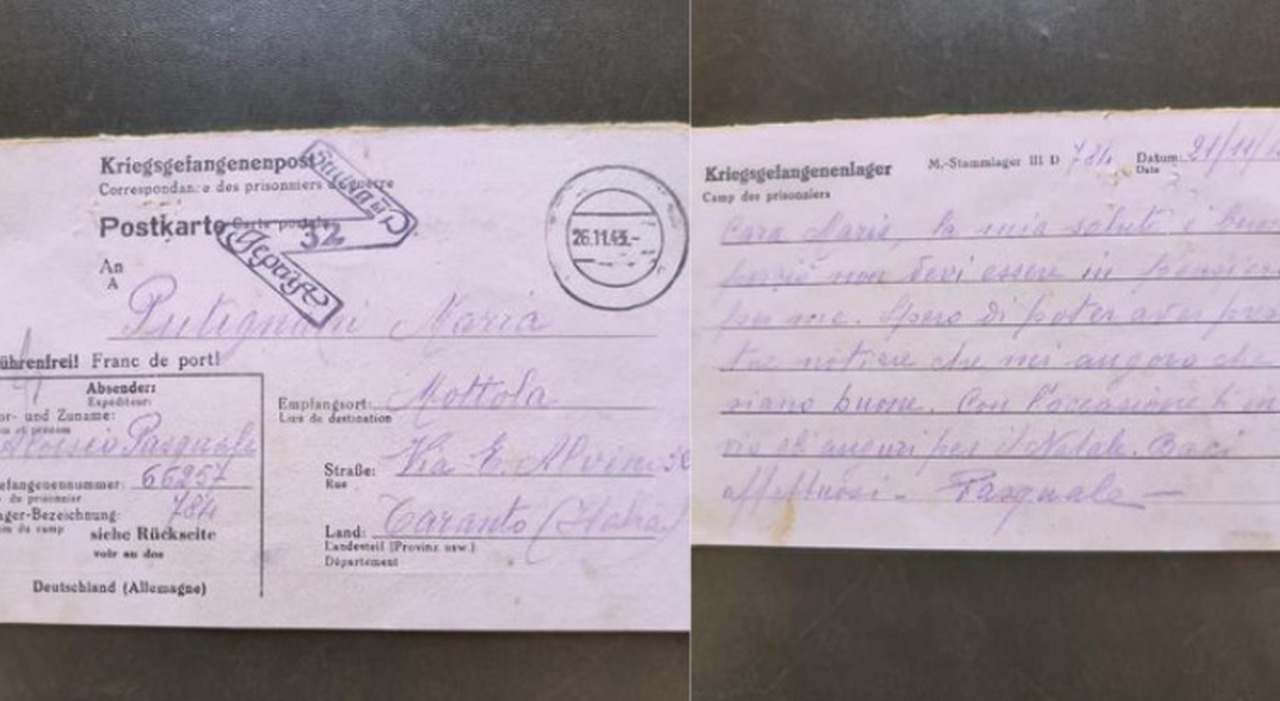 Kriegsgefangenenpost
Correspondance des prisonniers de guerre
Postkarte Carte postale
32
26.11.43.-
An
A
Maria
ührenfrei! Franc de port!
Absender:
Expéditeur:
or- und Zuname:
Pasquale
efangenennummer: 66257
du prisonnier
ager-Bezeichnung: 784
du camp
siehe Rückseite
voir au dos
Deutschland (Allemagne)
Empfangsort: Mottola
Lieu de destination
Straße: Via E.
Rue
Land: Taranto (Italia)
Landesteil (Provinz usw.)
Département
Kriegsgefangenenlager
Camp des prisonniers
M.-Stammlager III D 784
Datum: 21/11/
Date
Cara Maria, la mia salute è
perciò non devi essere in
per me. Spero di poter aver
tue notizie che mi auguro che
siano buone. Con l'occasione t'in
vio gl'auguri per il Natale. Baci
affettuosi - Pasquale -